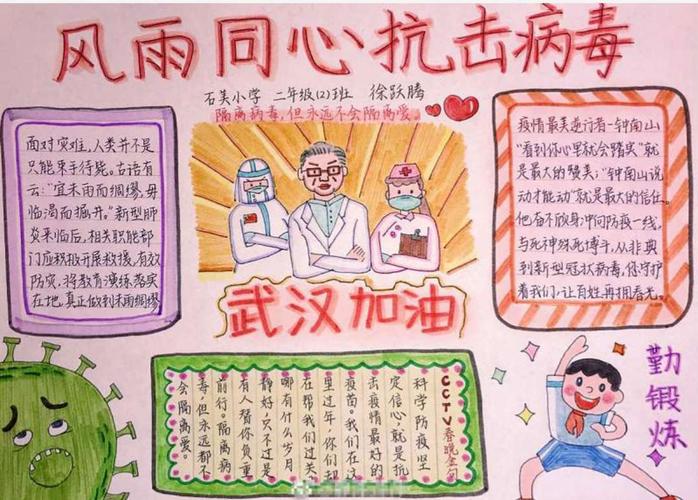 风雨同心抗击病毒
石美小学 二年级(2)班 徐跃腾
隔离病毒,但永远不会隔离爱。
面对灾难,人类并不是
只能束手待毙。古语有
云:"宜未雨而绸缪,毋
临渴而掘井。"新型肺
炎来临后,相关职能部
门应积极开展救援,有效
防灾,将教育演练落实
在地,真正做到未雨绸缪
疫情最美逆行者—钟南山
"看到你心里就会踏实"就
是最大的赞美;"钟南山说
动才能动"就是最大的信任。
他奋不顾身冲向防疫一线,
与死神殊死搏斗,从非典
到新型冠状病毒,你守护
着我们,让百姓再拥春光。
武汉加油
CCTV春晚金句
科学防疫坚
定信心,就是抗
击疫情最好的
疫苗。我们在这
里过年,你们却
在帮我们过关。
哪有什么岁月
静好,只不过是
有人替你负重
前行。隔离病
毒,但永远都不
会隔离爱。
勤锻炼